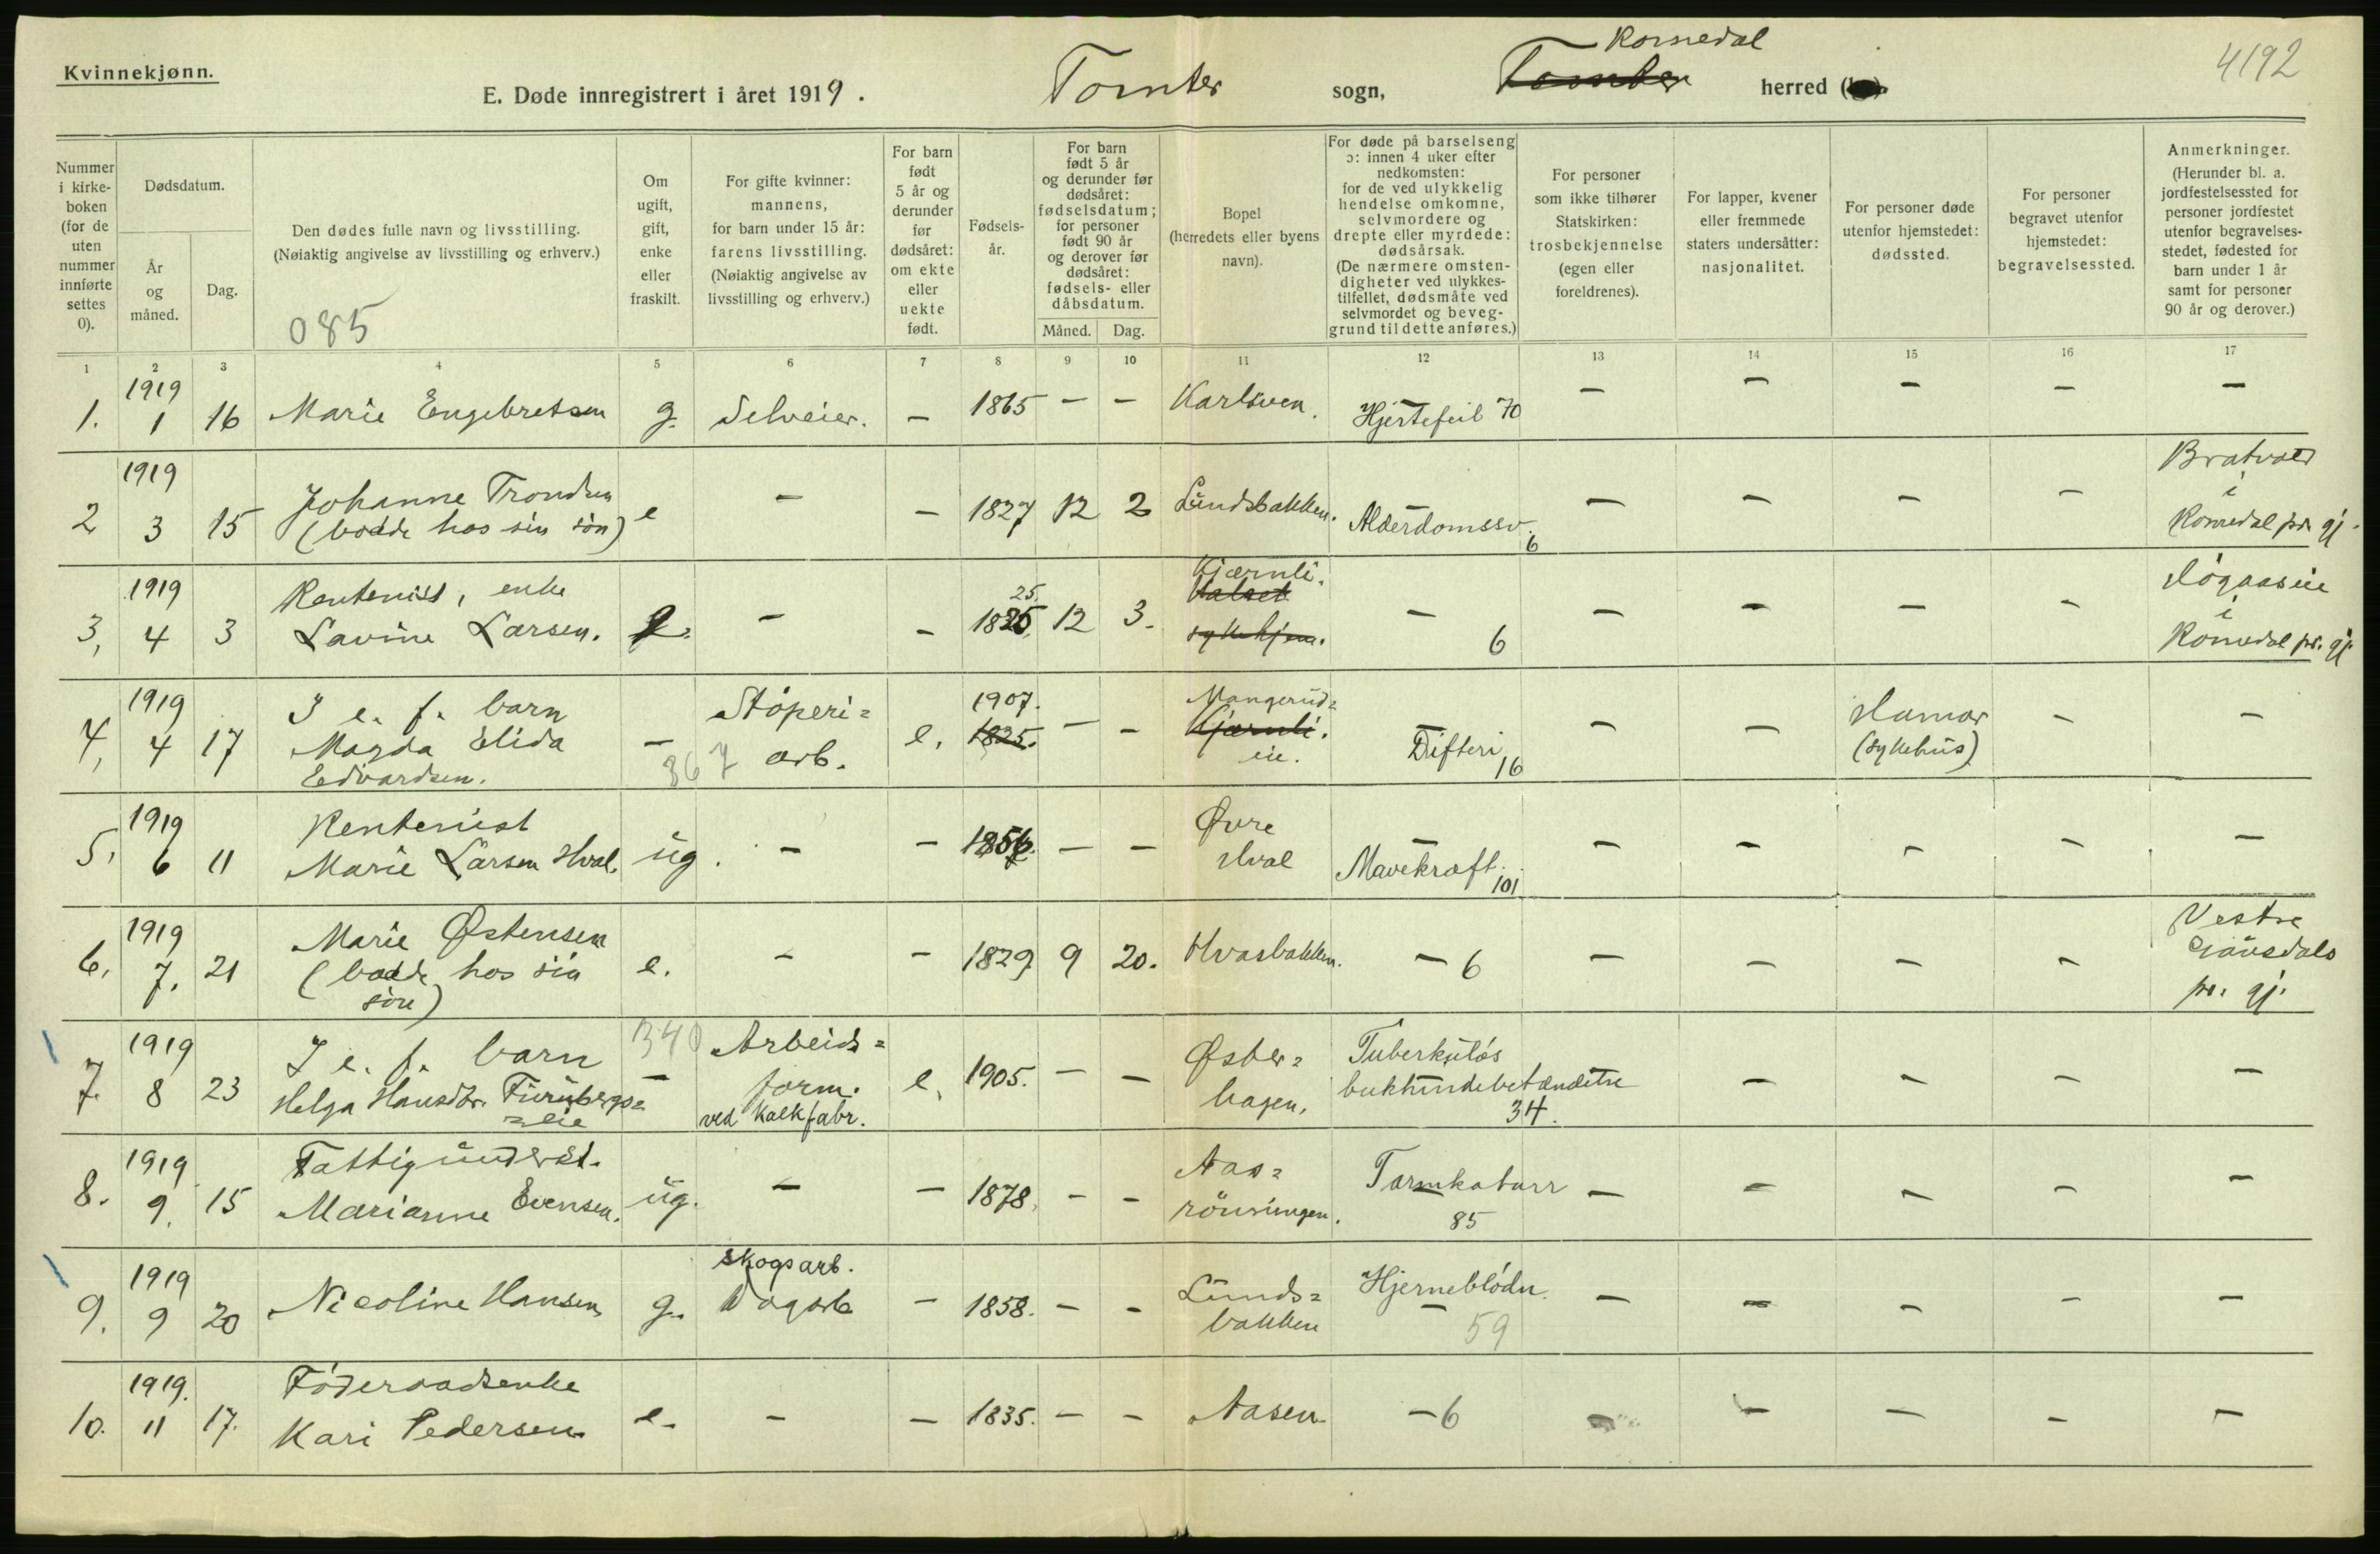 Kvinnekjønn.
E. Døde innregistrert i året 1919.
Tomter sogn,
Romedal
Tomter herred
4192
Nummer i kirke-boken (for de uten nummer innførte settes 0).
Dødsdatum.
År og måned.
Dag.
Den dødes fulle navn og livsstilling.
(Nøiaktig angivelse av livsstilling og erhverv.)
085
Om ugift, gift, enke eller fraskilt.
For gifte kvinner: mannens, for barn under 15 år: farens livsstilling.
(Nøiaktig angivelse av livsstilling og erhverv.)
For barn født 5 år og derunder før dødsåret: om ekte eller uekte født.
Fødsels-år.
For barn født 5 år og derunder før dødsåret: fødselsdatum; for personer født 90 år og derover før dødsåret: fødsels- eller dåbsdatum.
Måned. Dag.
Bopel (herredets eller byens navn).
For døde på barselseng ɔ: innen 4 uker efter nedkomsten: for de ved ulykkelig hendelse omkomne, selvmordere og drepte eller myrdede: dødsårsak.
(De nærmere omsten-digheter ved ulykkes-tilfellet, dødsmåte ved selvmordet og beveg-grund til dette anføres.)
For personer som ikke tilhører Statskirken: trosbekjennelse (egen eller foreldrenes).
For lapper, kvener eller fremmede staters undersåtter: nasjonalitet.
For personer døde utenfor hjemstedet: dødssted.
For personer begravet utenfor hjemstedet: begravelsessted.
Anmerkninger.
(Herunder bl. a. jordfestelsessted for personer jordfestet utenfor begravelses-stedet, fødested for barn under 1 år samt for personer 90 år og derover.)
1 2 3 4 5 6 7 8 9 10 11 12 13 14 15 16 17
1. 1919 1 16 Marie Engebretsen g. Selveier. – 1865 – – Karlsven. – Hjertefeil 70 – – – – –
2 1919 3 15 Johanne Trondsen (bodde hos sin søn) e – – 1827 12 2 Lundsbakken. Alderdomssv. 6 – – – – Bratvold i Romedal pr. gj.
3, 1919 4 3 Rentenist, enke Lavine Larsen. e. – – 25. 1825, 12 3. Kjærnli. sykehjem. – 6 – – – – i Romedal pr. gj.
4, 1919 4 17 I e. f. barn Magda Elida Edvardsen. – 367 Støperi= arb. e. 1907. 1825. – – Mangerud= Kjærnli. eie. – Difteri 16 – – Hamar (sykehus) – –
5, 1919 6 11 Rentenist Marie Larsen Hval. ug. – – 1856. – – Øvre Hval – Mavekræft. 101 – – – – –
6, 1919 7. 21 Marie Østensen (bodde hos sin søn) e. – – 1829 9 20. Hvasbakken. – 6 – – – – Vestre Gausdals pr. gj.
7. 1919 8 23 I e. f. barn Helga Hansdtr. Furubergs= eie 340 – Arbeids= form. ved Kalkfabr. e, 1905. – – Øster= hagen, Tuberkuløs bukhindebetændelse 34. – – – –
8. 1919 9. 15 Fattigunderst. Marianne Evensen. ug. – – 1878, – – Aas= rönningen. Tarmkatarr 85 – – – – –
9. 1919 9 20 Nicoline Hansen g. skogsarb. Dagarb – 1858. – – Lunds= bakken Hjerneblødn. – 59 – – – – –
10. 1919. 11 17. Föderaadsenke Kari Pedersen e. – – 1835. – – Aasen – 6 – – – – –